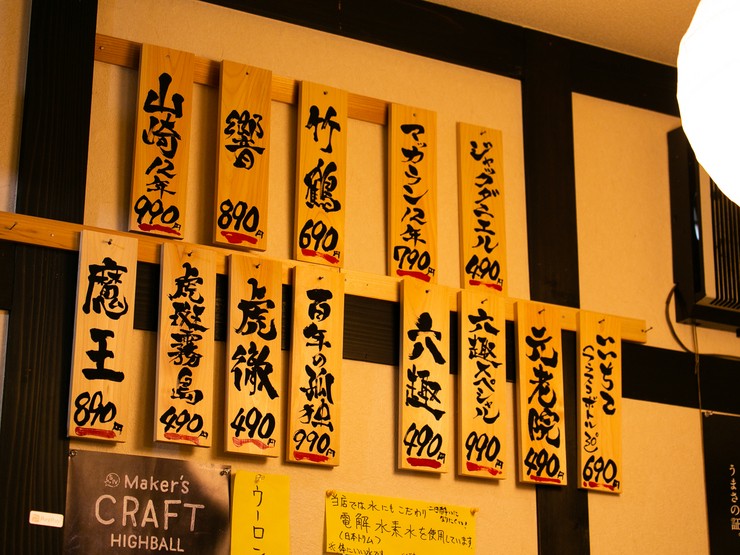 山崎12年
990円
響
890円
竹鶴
690円
マッカラン12年
790円
ジャックダニエル
490円
魔王
890円
虎斑霧島
490円
虎徹
490円
百年の孤独
990円
六趣
490円
六趣スペシャル
990円
元老院
490円
いいちこ
690円
Maker's
CRAFT
HIGHBALL
ウーロン
当店では水にもこだわり
電解水素水を使用しています
(日本トリム)
うまさの証